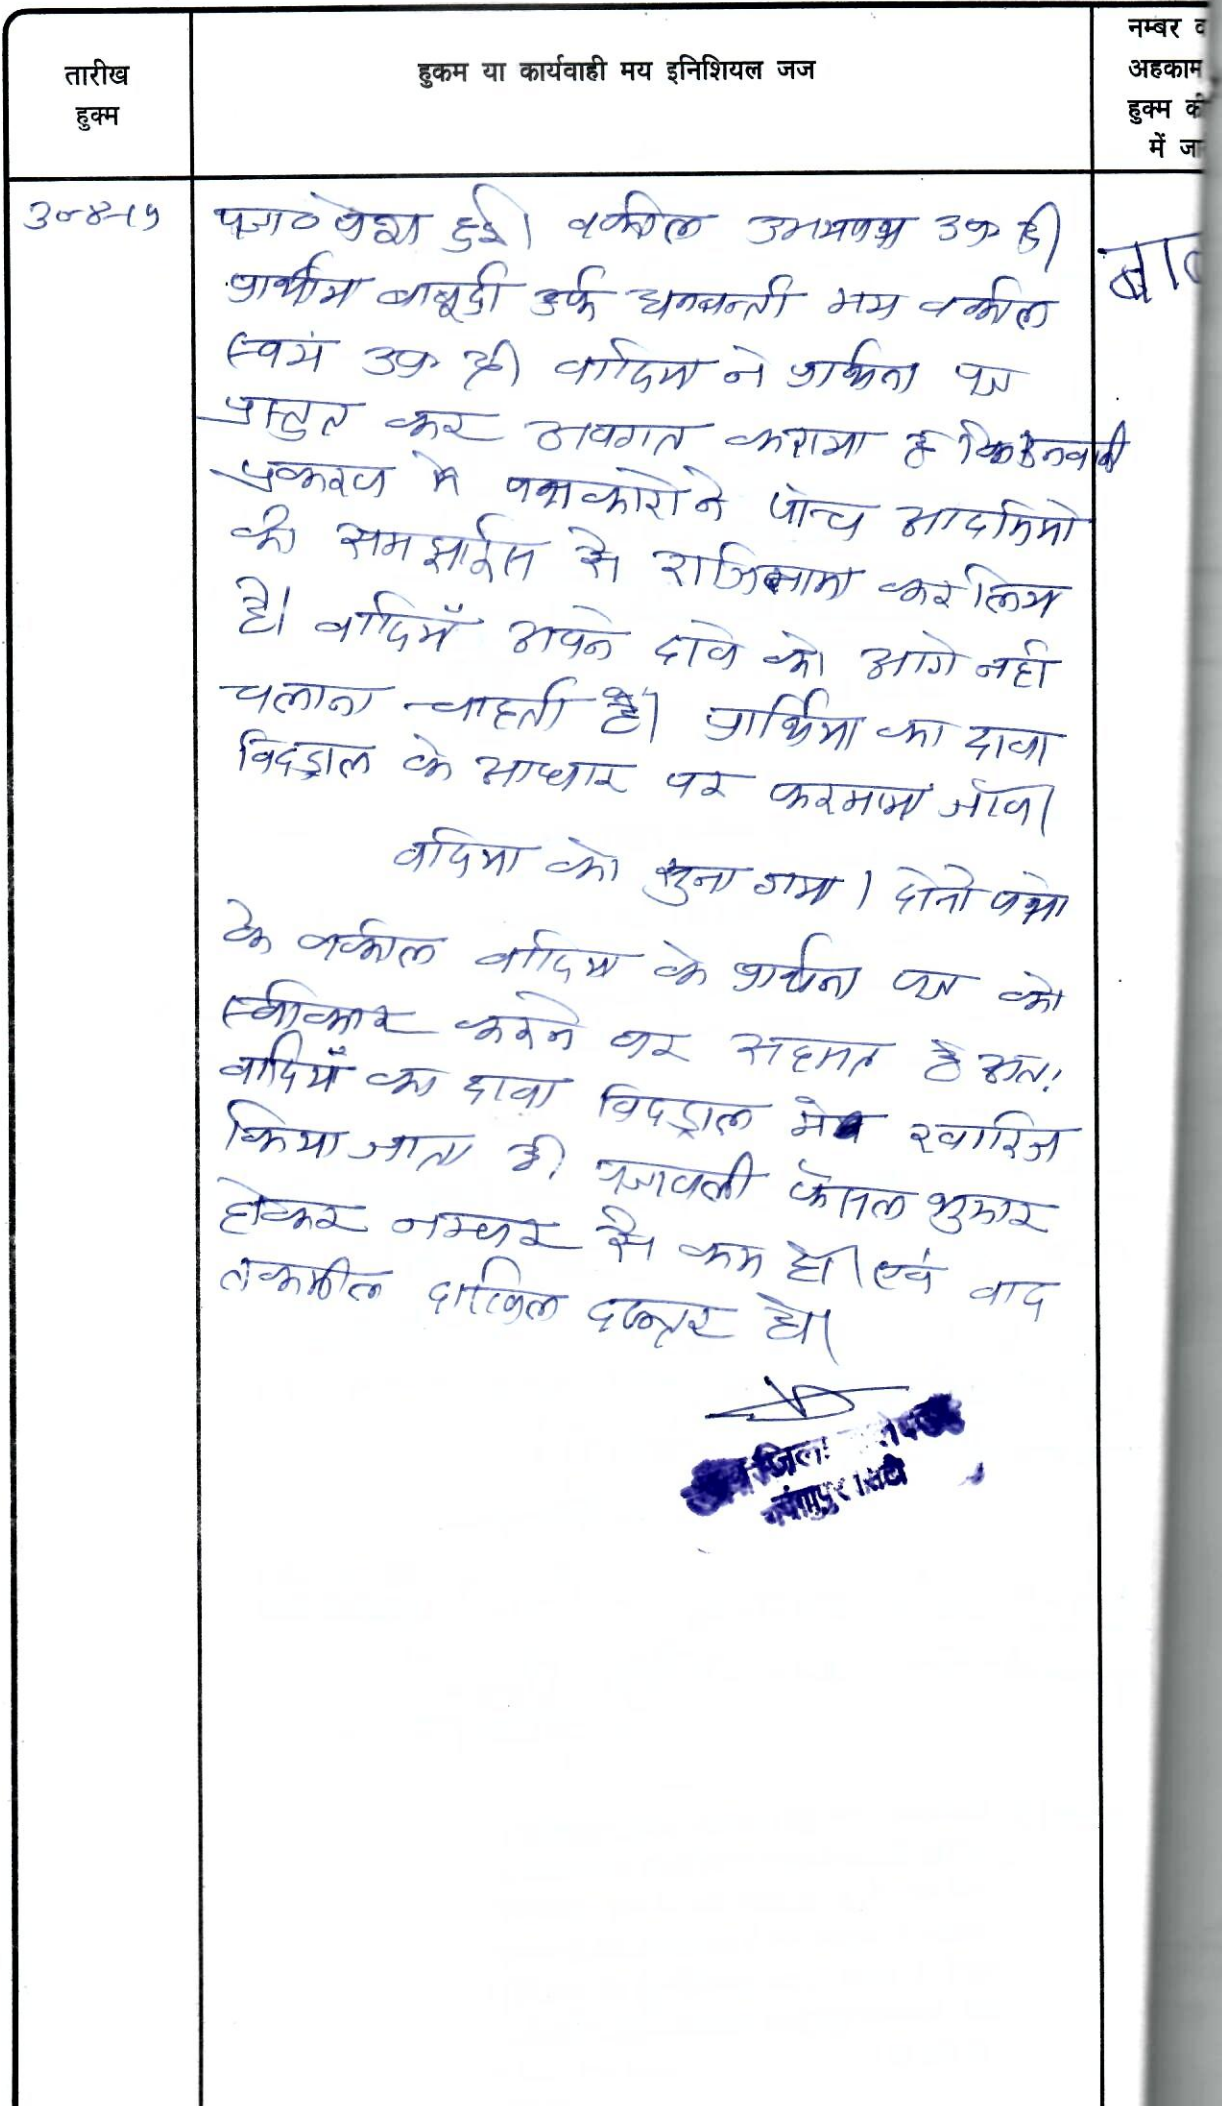 तारीख
हुक्म
हुकम या कार्यवाही मय इनिशियल जज
नम्बर व
अहकाम
हुक्म की
में जा
30-4-15
पत्रा० पेश हुई। वकील उभयपक्ष उप० है।
प्रार्थीया बाबूदी उर्फ धनवन्ती मय वकील
स्वयं उप० है। वादिया ने प्रार्थना पत्र
प्रस्तुत कर अवगत कराया है कि
प्रकरण मे पक्षकारो ने पॉन्च आदमियो
की समझाईस से राजिनामा कर लिया
है। वादियॉ अपने दावे को आगे नही
चलाना चाहती है। प्रार्थिया का दावा
विदड्राल के आधार पर फरमाया जॉवे।
वादिया को सुना गया। दोनो पक्षो
के वकील वादिया के प्रार्थना पत्र को
स्वीकार करने पर सहमत है अतः
वादियॉ का दावा विदड्राल मे खारिज
किया जाता है। पत्रावली फैसल शुमार
होकर नम्बर से कम हो। एवं बाद
तकमील दाखिल दफ्तर हो।
जिला
गंगापुर सिटी